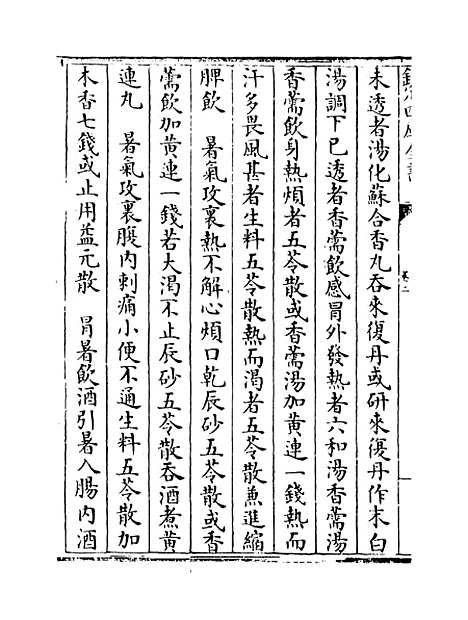 欽定四庫全書
卷二
未透者湯化蘇合香丸吞來復丹或研來復丹作末白
湯調下已透者香薷飲感冒外發熱者六和湯香薷湯
香薷飲身熱煩者五苓散或香薷湯加黄連一錢熱而
汗多畏風甚者生料五苓散熱而渴者五苓散兼進縮
脾飲 暑氣攻裏熱不解心煩口乾辰砂五苓散或香
薷飲加黄連一錢若大渴不止辰砂五苓散吞酒煮黄
連丸 暑氣攻裏腹内刺痛小便不通生料五苓散加
木香七錢或止用益元散 冒暑飲酒引暑入腸内酒